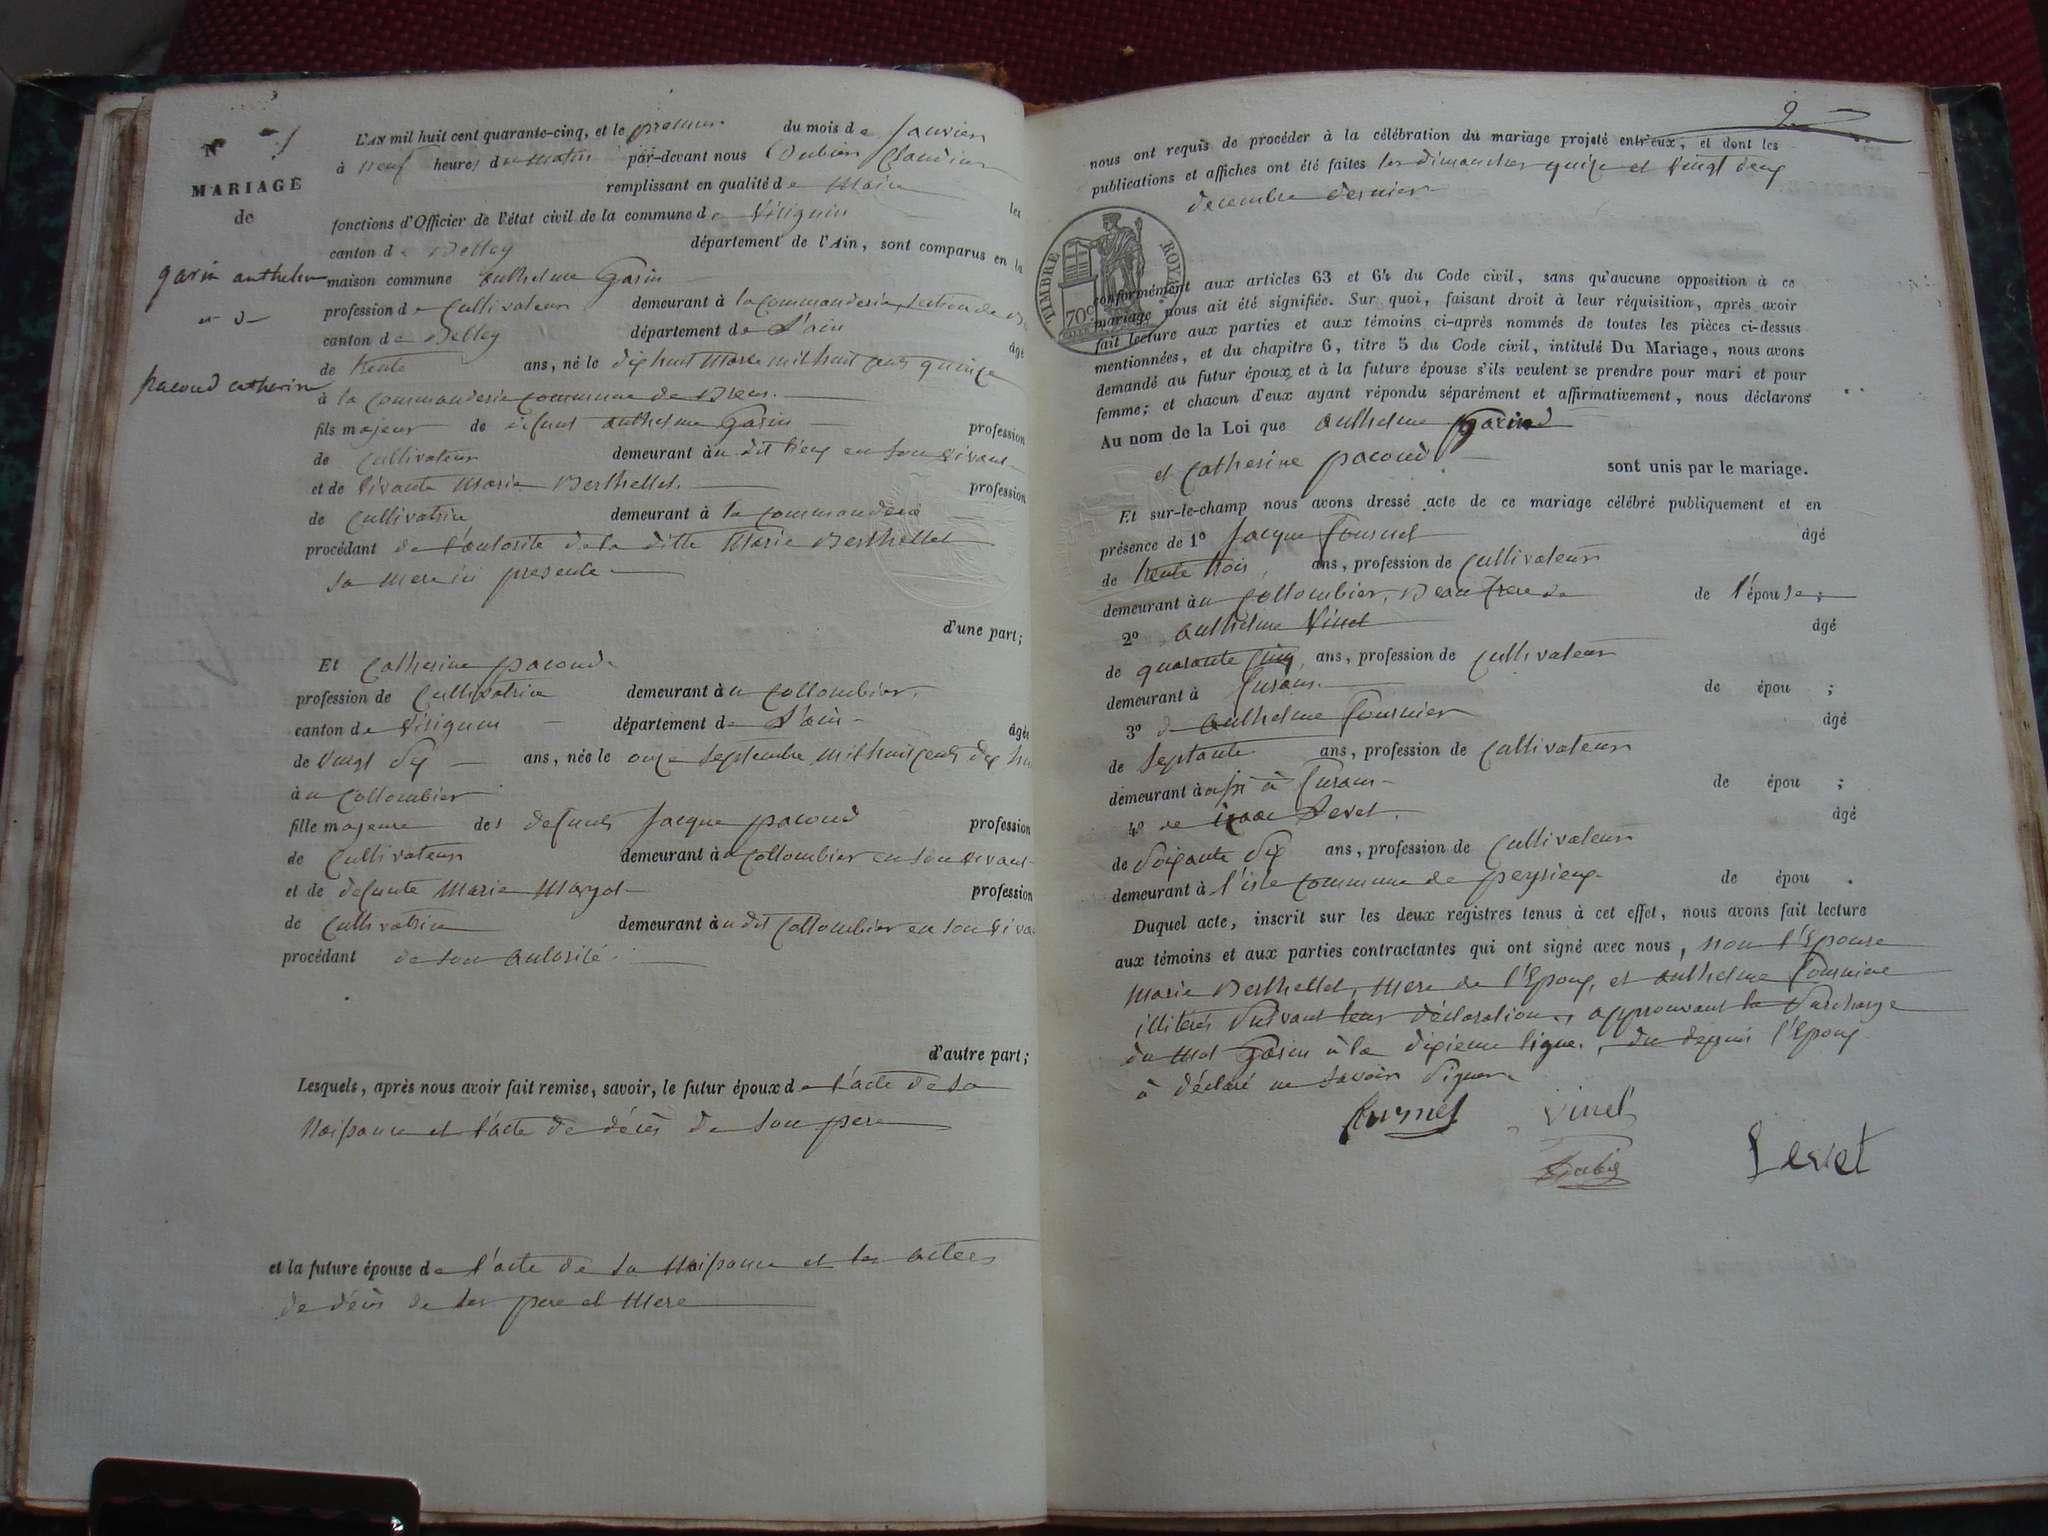 N° 1
MARIAGE
de
garin anthelme
et de
pacoud catherine
L'AN mil huit cent quarante-cinq, et le premier du mois de Janvier
à neuf heures du matin par-devant nous Dubien Claudien
remplissant en qualité de Maire les
fonctions d'Officier de l'état civil de la commune de Virignin
canton de Belley département de l'Ain, sont comparus en la
maison commune anthelme Garin
profession de Cultivateur demeurant à la Commanderie, section de
canton de Belley département de L'ain âgé
de trente ans, né le dix huit Mars mil huit cent quinze
à la Commanderie commune de Brens.
fils majeur de défunt anthelme Garin profession
de Cultivateur demeurant au dit lieu en son vivant
et de vivante Marie Berthellet. profession
de Cultivatrice demeurant à la Commanderie
procédant de l'autorité de la ditte Marie Berthellet
sa mere ici presente
d'une part;
Et Catherine pacoud
profession de Cultivatrice demeurant au Collombier.
canton de Virignin département de L'ain âgée
de vingt six ans, née le onze Septembre mil huit cent dix hu
à u Collombier
fille majeure des defunts Jacque pacoud profession
de Cultivateur demeurant à u Collombier en son vivant
et de defunte Marie Mayot profession
de Cultivatrice demeurant au dit Collombier en son viva
procédant de son autorité.
d'autre part;
Lesquels, après nous avoir fait remise, savoir, le futur époux de l'acte de sa
Naissance et l'acte de décès de son pere
et la future épouse de l'acte de sa Naissance et les actes
de décès de ses pere et Mere
2
nous ont requis de procéder à la célébration du mariage projeté entr'eux, et dont les
publications et affiches ont été faites les dimanches quinze et vingt deux
decembre dernier
TIMBRE ROYAL
70c
conformément aux articles 63 et 64 du Code civil, sans qu'aucune opposition à ce
mariage nous ait été signifiée. Sur quoi, faisant droit à leur réquisition, après avoir
fait lecture aux parties et aux témoins ci-après nommés de toutes les pièces ci-dessus
mentionnées, et du chapitre 6, titre 5 du Code civil, intitulé Du Mariage, nous avons
demandé au futur époux et à la future épouse s'ils veulent se prendre pour mari et pour
femme; et chacun d'eux ayant répondu séparément et affirmativement, nous déclarons
Au nom de la Loi que anthelme Garin
et Catherine pacoud sont unis par le mariage.
Et sur-le-champ nous avons dressé acte de ce mariage célébré publiquement et en
présence de 1° Jacque fournet âgé
de trente trois, ans, profession de Cultivateur
demeurant à u Collombier, Beau frere de de l'épouse;
2° anthelme Vinet âgé
de quarante cinq ans, profession de Cultivateur
demeurant à Curans. de épou ;
3° d anthelme fournier âgé
de septante ans, profession de Cultivateur
demeurant à ussi à Curans de épou ;
4° de izaac Levet. âgé
de Soixante dix ans, profession de Cultivateur
demeurant à l'isle Commune de peyrieux de épou .
Duquel acte, inscrit sur les deux registres tenus à cet effet, nous avons fait lecture
aux témoins et aux parties contractantes qui ont signé avec nous, non l'Epouse
Marie Berthellet, Mere de l'Epoux, et anthelme fournier
illiterés suivant leur déclaration, approuvant la surcharge
du mot Garin à la dixieme ligne, l'Epoux
à déclaré ne savoir signer
fournet vinet
Dubien Levet